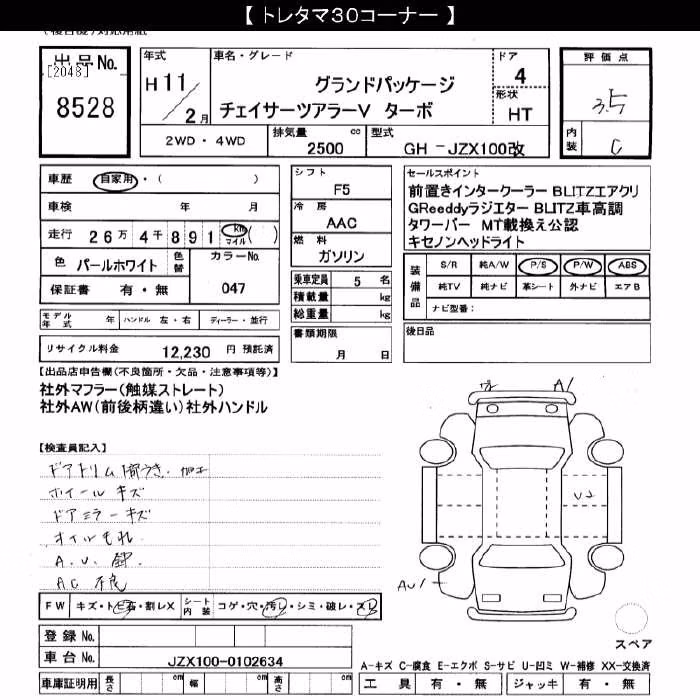 【トレタマ30コーナー】
出品No.
[2048]
8528
年式
H 11/2月
車名・グレード
グランドパッケージ
チェイサーツアラーV ターボ
ドア
4
形状
HT
評価点
3.5
内装
C
2WD・4WD
排気量 cc
2500
型式
GH -JZX100改
車歴 自家用・( )
車検 年 月
走行 26万4千891 km マイル ( )
色 パールホワイト 色替
カラーNo.
047
保証書 有・無
モデル年式 年 ハンドル 左・右 ディーラー・並行
リサイクル料金 12,230 円 預託済
シフト
F5
冷房
AAC
燃料
ガソリン
乗車定員 5 名
積載量 kg
総重量 kg
書類期限
月 日
セールスポイント
前置きインタークーラー BLITZエアクリ
GReeddyラジエター BLITZ車高調
タワーバー MT載換え公認
キセノンヘッドライト
装備品
S/R 純A/W P/S P/W ABS
純TV 純ナビ 革シート 外ナビ エアB
ナビ型番:
後日品
【出品店申告欄(不良箇所・欠品・注意事項等)】
社外マフラー(触媒ストレート)
社外AW(前後柄違い)社外ハンドル
【検査員記入】
ドアトリム 加工
ホイール キズ
ドアミラー キズ
オイルもれ
AC 不良
A/
FW キズ・トビ石・割レX シート内装 コゲ・穴・汚レ・シミ・破レ・スレ
登録No.
車台No. JZX100-0102634
車庫証明用 長さ cm 幅 cm 高さ cm
スペア
A-キズ C-腐食 E-エクボ S-サビ U-凹ミ W-補修 XX-交換済
工具 有・無 ジャッキ 有・無